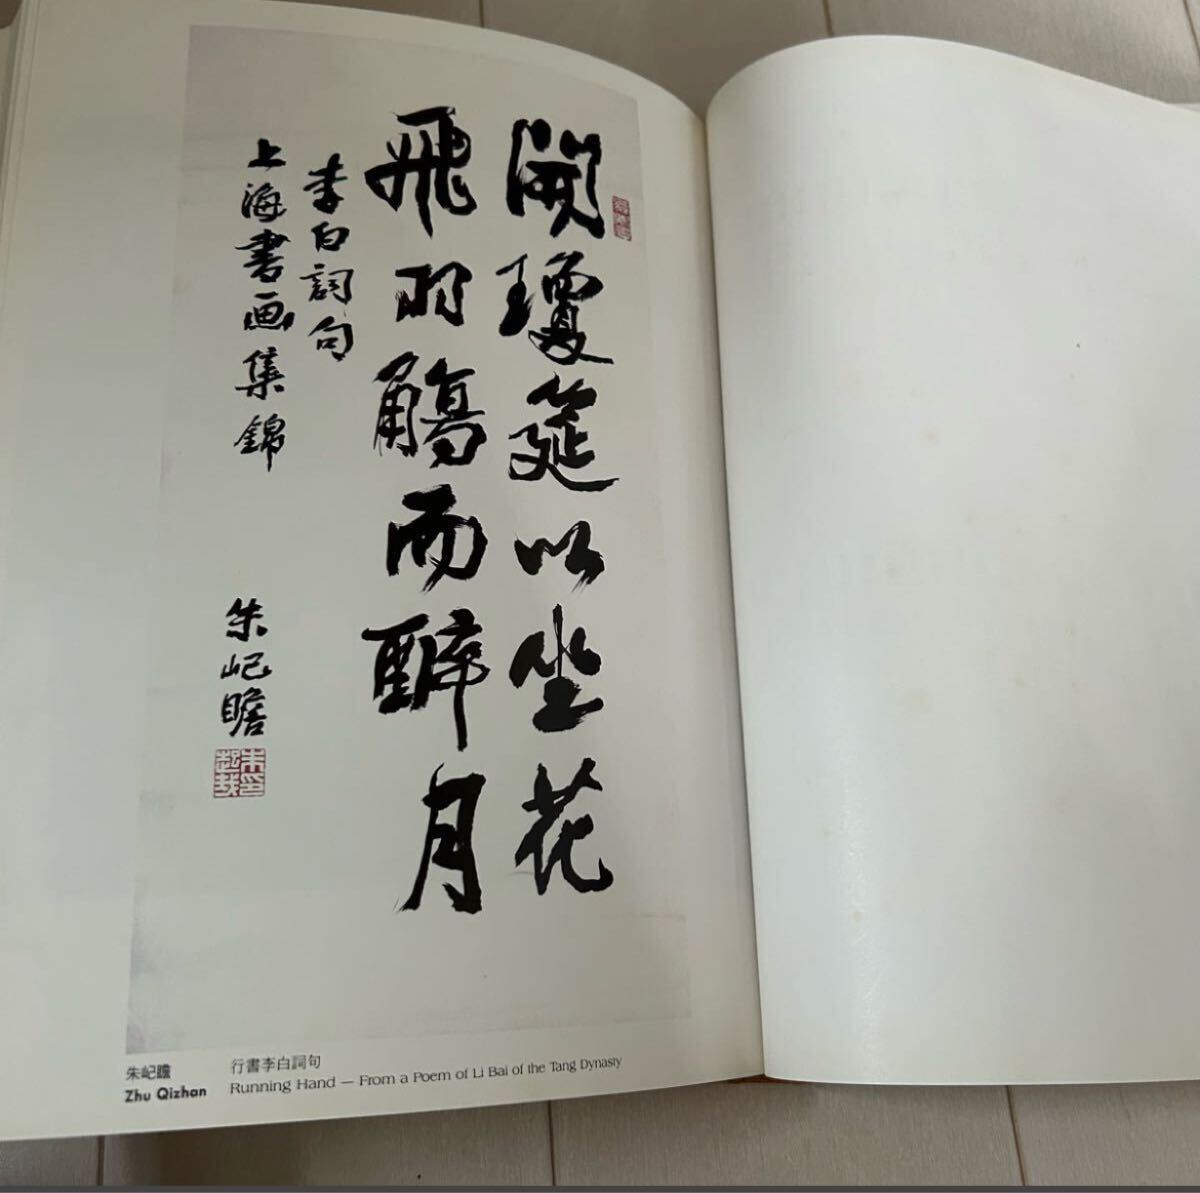 開瓊筵以坐花
飛羽觴而醉月
李白詞句
上海書画集錦
朱屺瞻
朱屺瞻
Zhu Qizhan
行書李白詞句
Running Hand — From a Poem of Li Bai of the Tang Dynasty